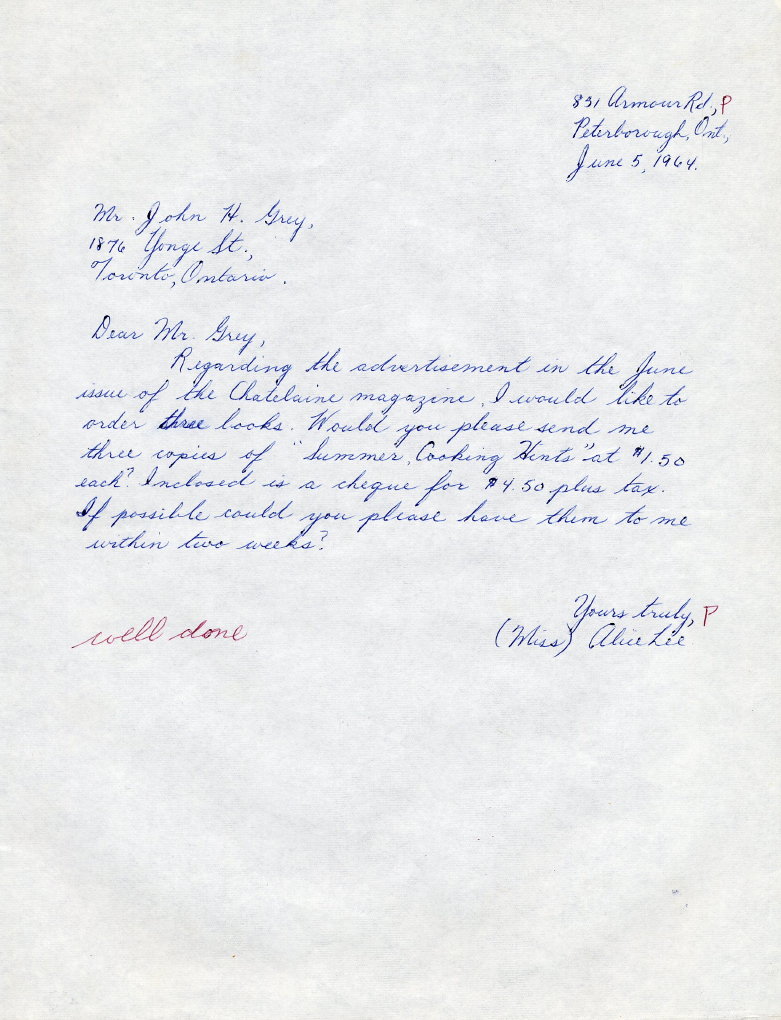 831 Armour Rd., P
Peterborough, Ont.,
June 5, 1964.
Mr. John H. Grey,
1876 Yonge St.,
Toronto, Ontario.
Dear Mr. Grey,
Regarding the advertisement in the June
issue of the Chatelaine magazine, I would like to
order three books. Would you please send me
three copies of "Summer Cooking Hints" at $1.50
each? Inclosed is a cheque for $4.50 plus tax.
If possible could you please have them to me
within two weeks?
Yours truly, P
well done
(Miss) Alice Lee